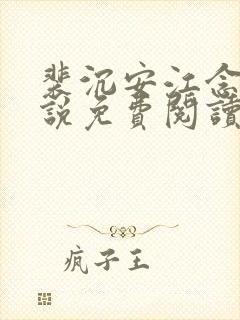 裴沉安江念
說免費閱讀
疯子王